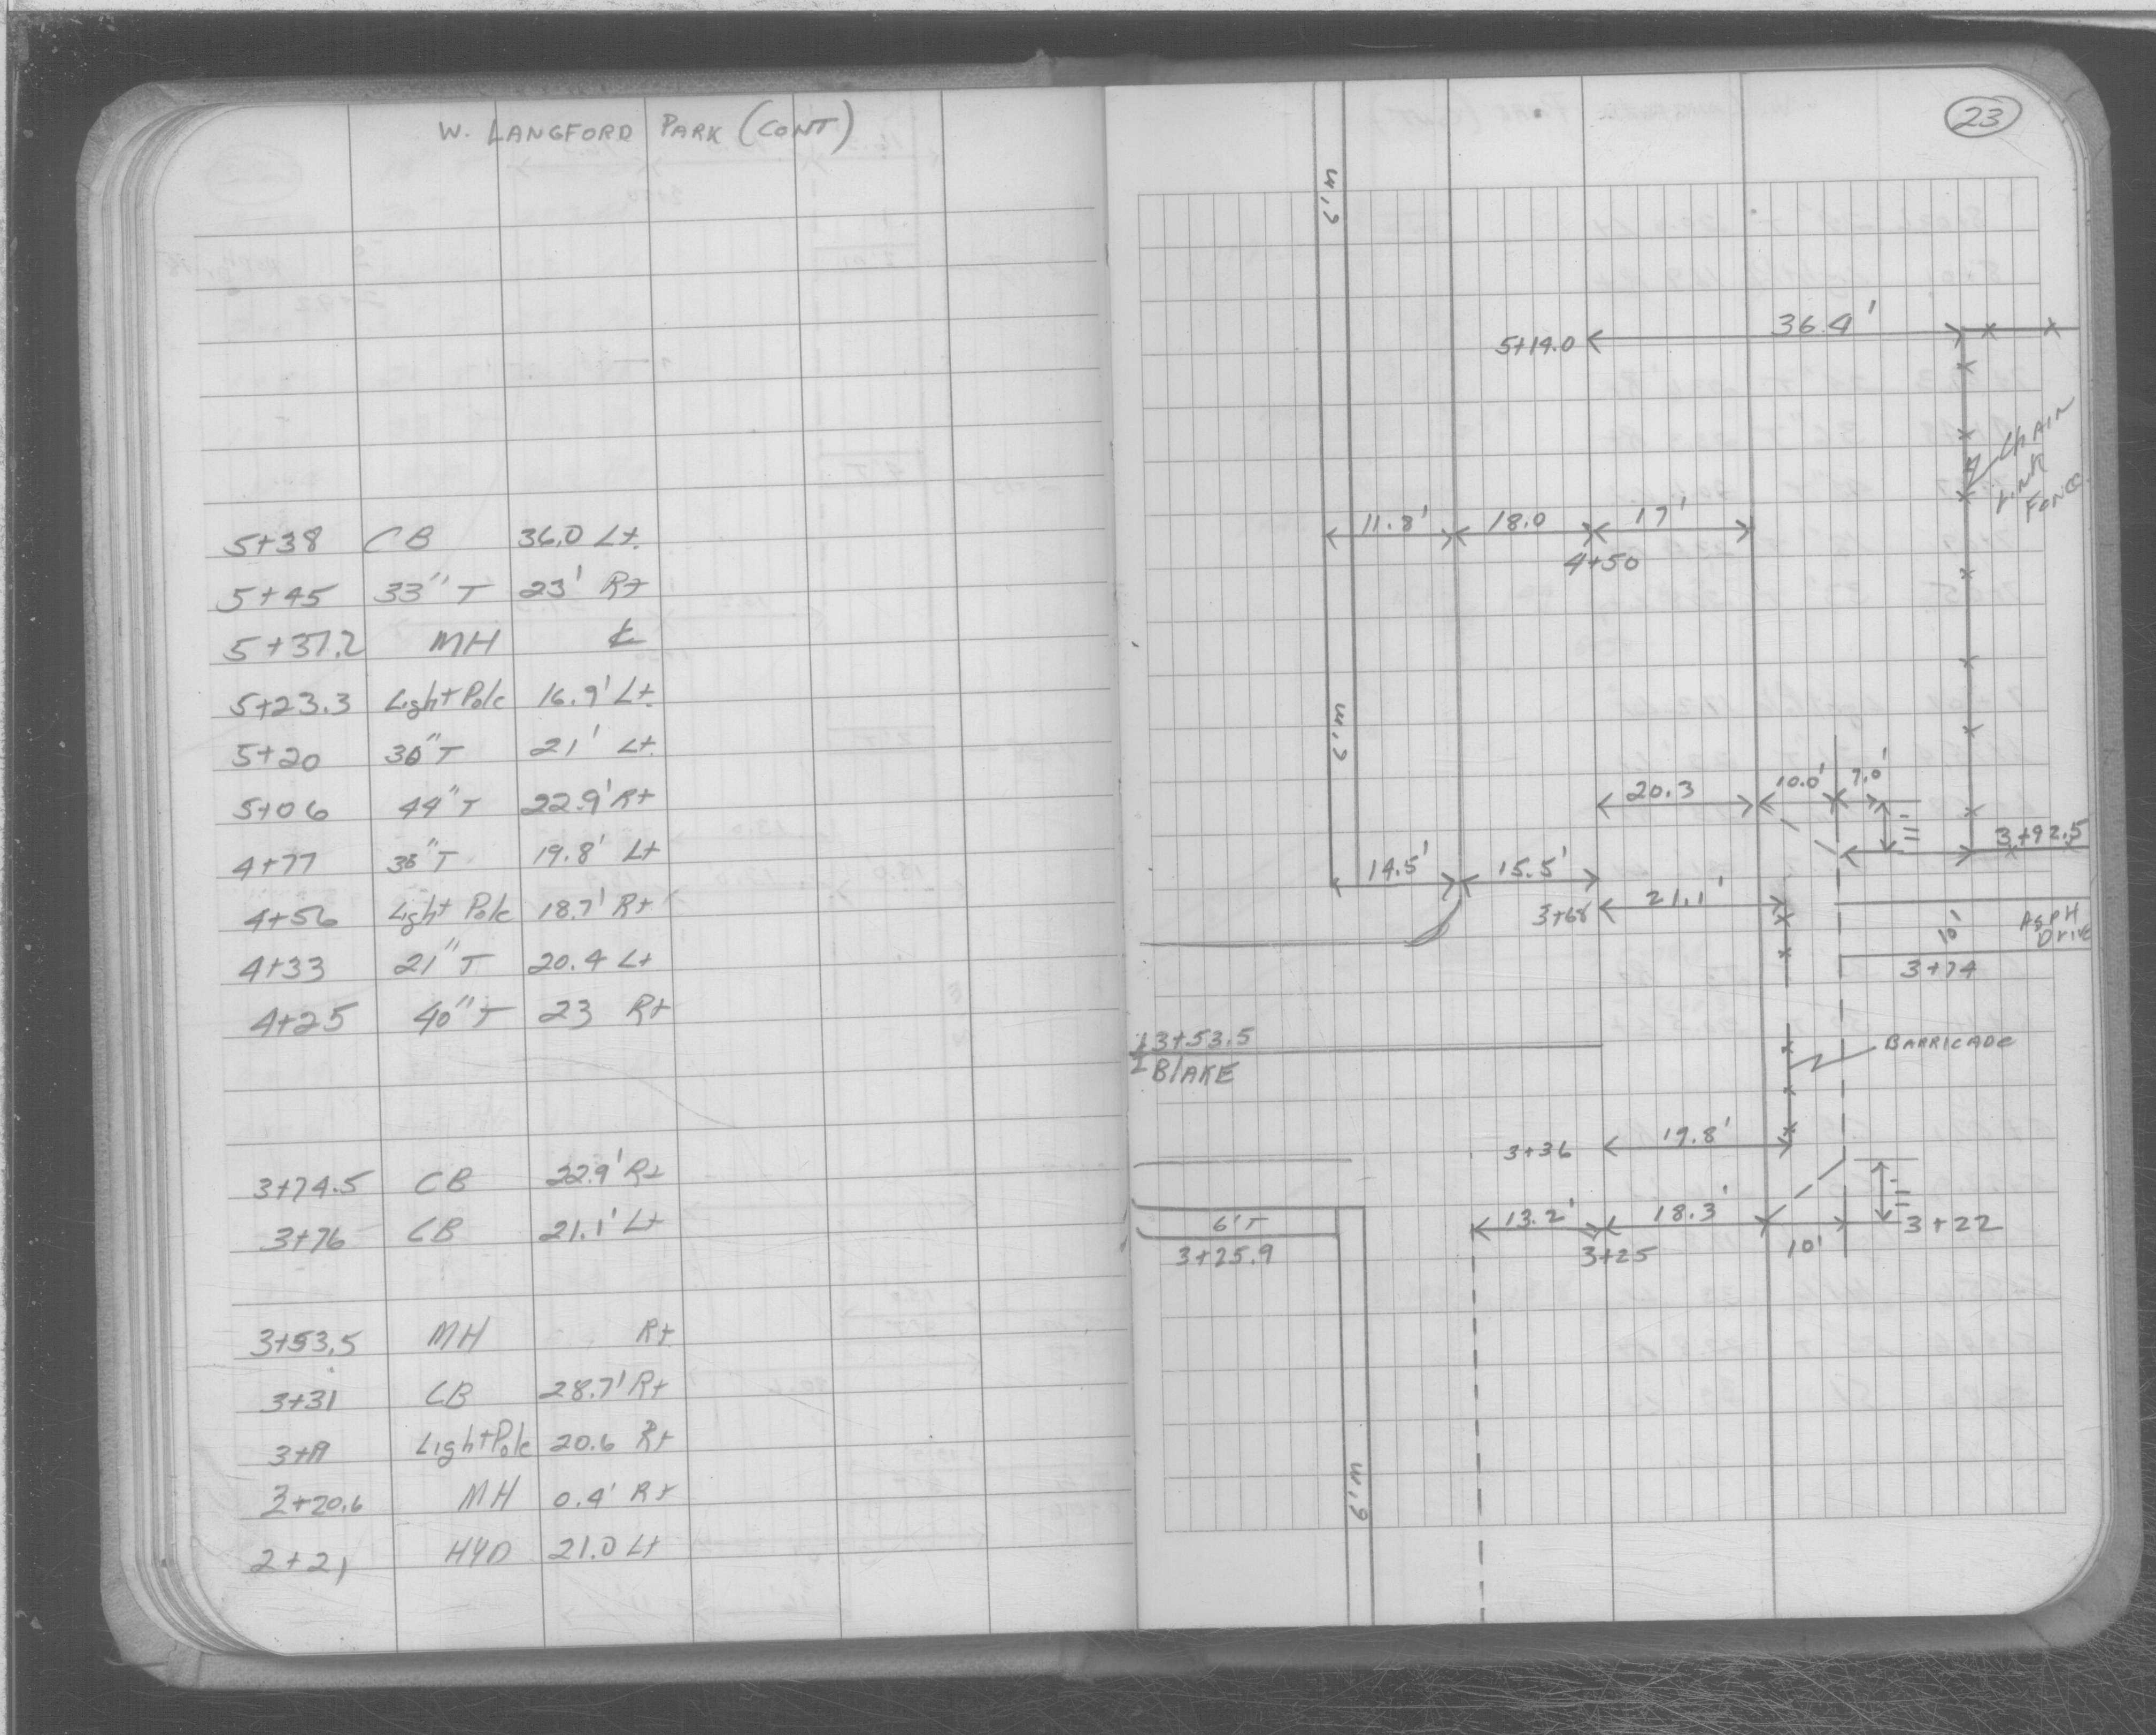 W. LANGFORD PARK (CONT)
5+38 CB 36.0 Lt.
5+45 33" T 23' Rt
5+37.2 MH ℄
5+23.3 Light Pole 16.9' Lt.
5+20 30" T 21' Lt.
5+06 44" T 22.9' Rt
4+77 "T 19.8' Lt
4+56 Light Pole 18.7' Rt
4+33 21" T 20.4 Lt
4+25 40" T 23 Rt
3+74.5 CB 22.9' Rt
3+76 CB 21.1' Lt
3+53.5 MH Rt
3+31 CB 28.7' Rt
Light Pole 20.6 Rt
MH 0.4' Rt
2+21 HYD 21.0 Lt
23
6'W
36.4'
5+14.0
Chain
Link
Fence
11.8' 18.0 17'
4+50
6'W
20.3 10.0' 7.0'
11'
3+92.5
14.5' 15.5'
3+68 21.1'
10' Asph
Drive
3+74
3+53.5
BLAKE
BARRICADE
3+36 19.8'
11'
6'T 13.2' 18.3' 3+22
3+25.9 3+25 10'
6'W